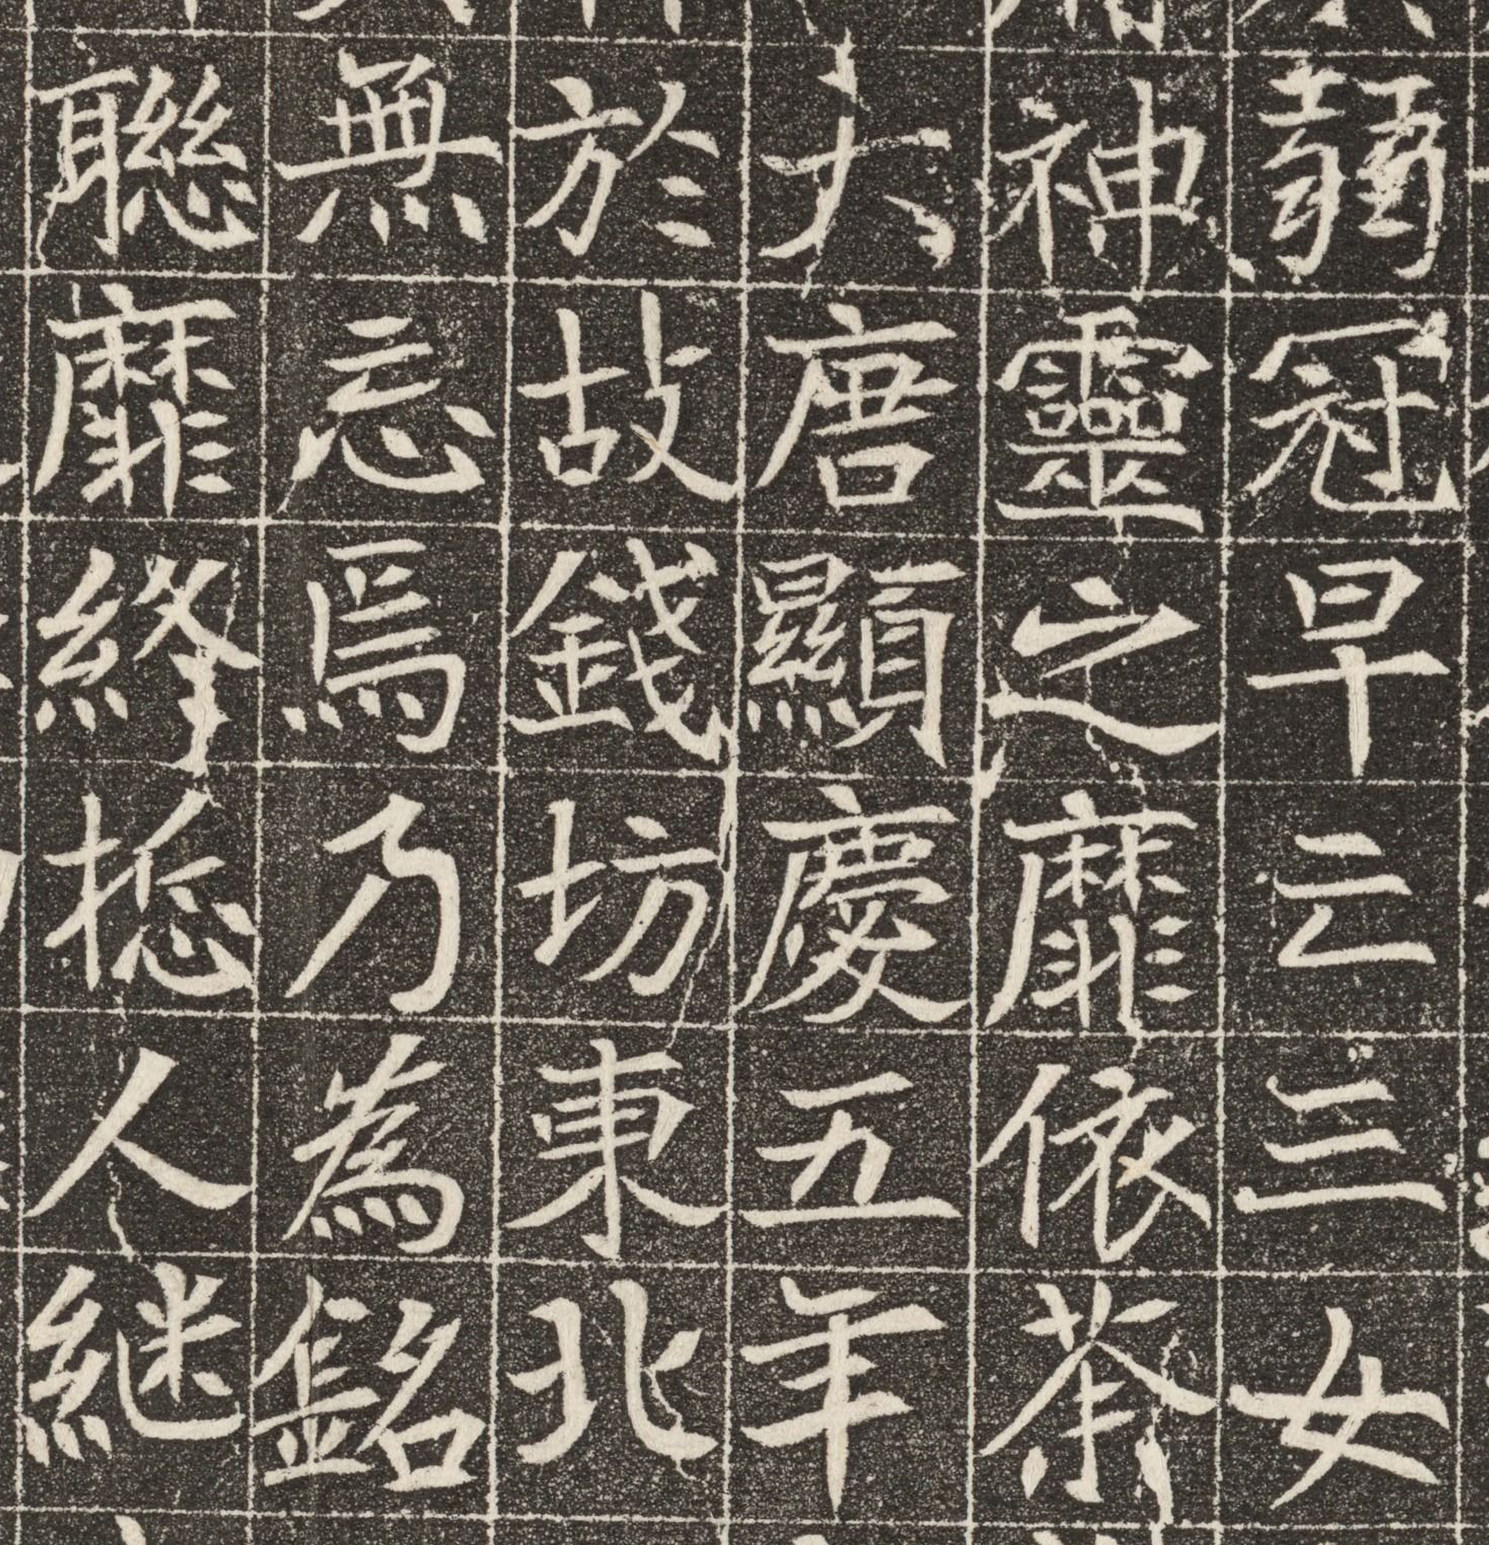 弱冠早亡三女
神靈之靡依荼
大唐顯慶五年
於故錢坊東北
無忘焉乃為銘
聯靡終惣人継